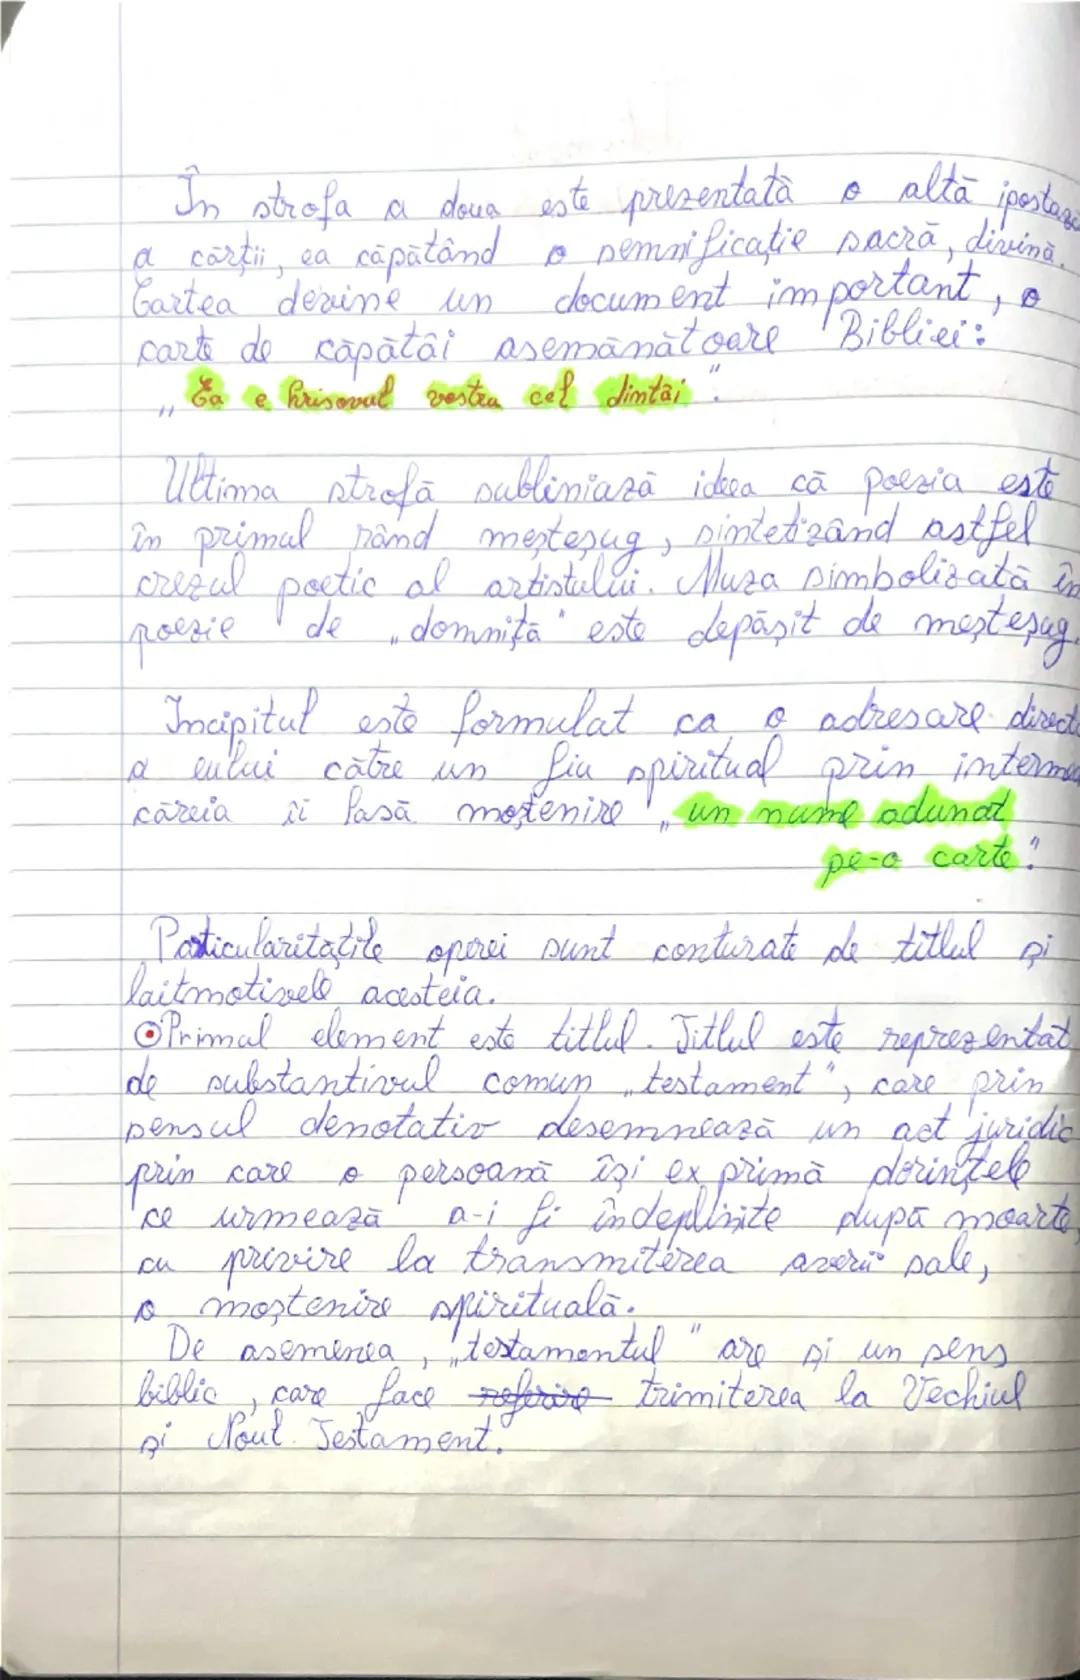 În strofa a doua este prezentată o altă ipostază
a cărții, ea căpătând o semnificație sacră, divină.
Cartea devine un document important, o
carte de căpătâi asemănătoare Bibliei:
„Ea e hrisovul vostru cel dintâi".
Ultima strofă subliniază ideea că poezia este
în primul rând meșteșug, sintetizând astfel
crezul poetic al artistului. Muza simbolizată în
poezie de „domniță" este depășit de meșteșug.
Incipitul este formulat ca o adresare directă
a eului către un fiu spiritual prin
căreia îi lasă moștenire „un nume adunat
pe-o carte".
Particularitățile operei sunt conturate de titlul și
laitmotivele acesteia.
Primul element este titlul. Titlul este reprezentat
de substantivul comun „testament", care prin
sensul denotativ desemnează un act juridic
prin care o persoană își exprimă dorințele
ce urmează a-i fi îndeplinite după moarte,
cu privire la transmiterea averii sale,
o moștenire spirituală.
De asemenea, „testamentul" are și un sens
biblic, care face referire trimiterea la Vechiul
și Noul Testament.